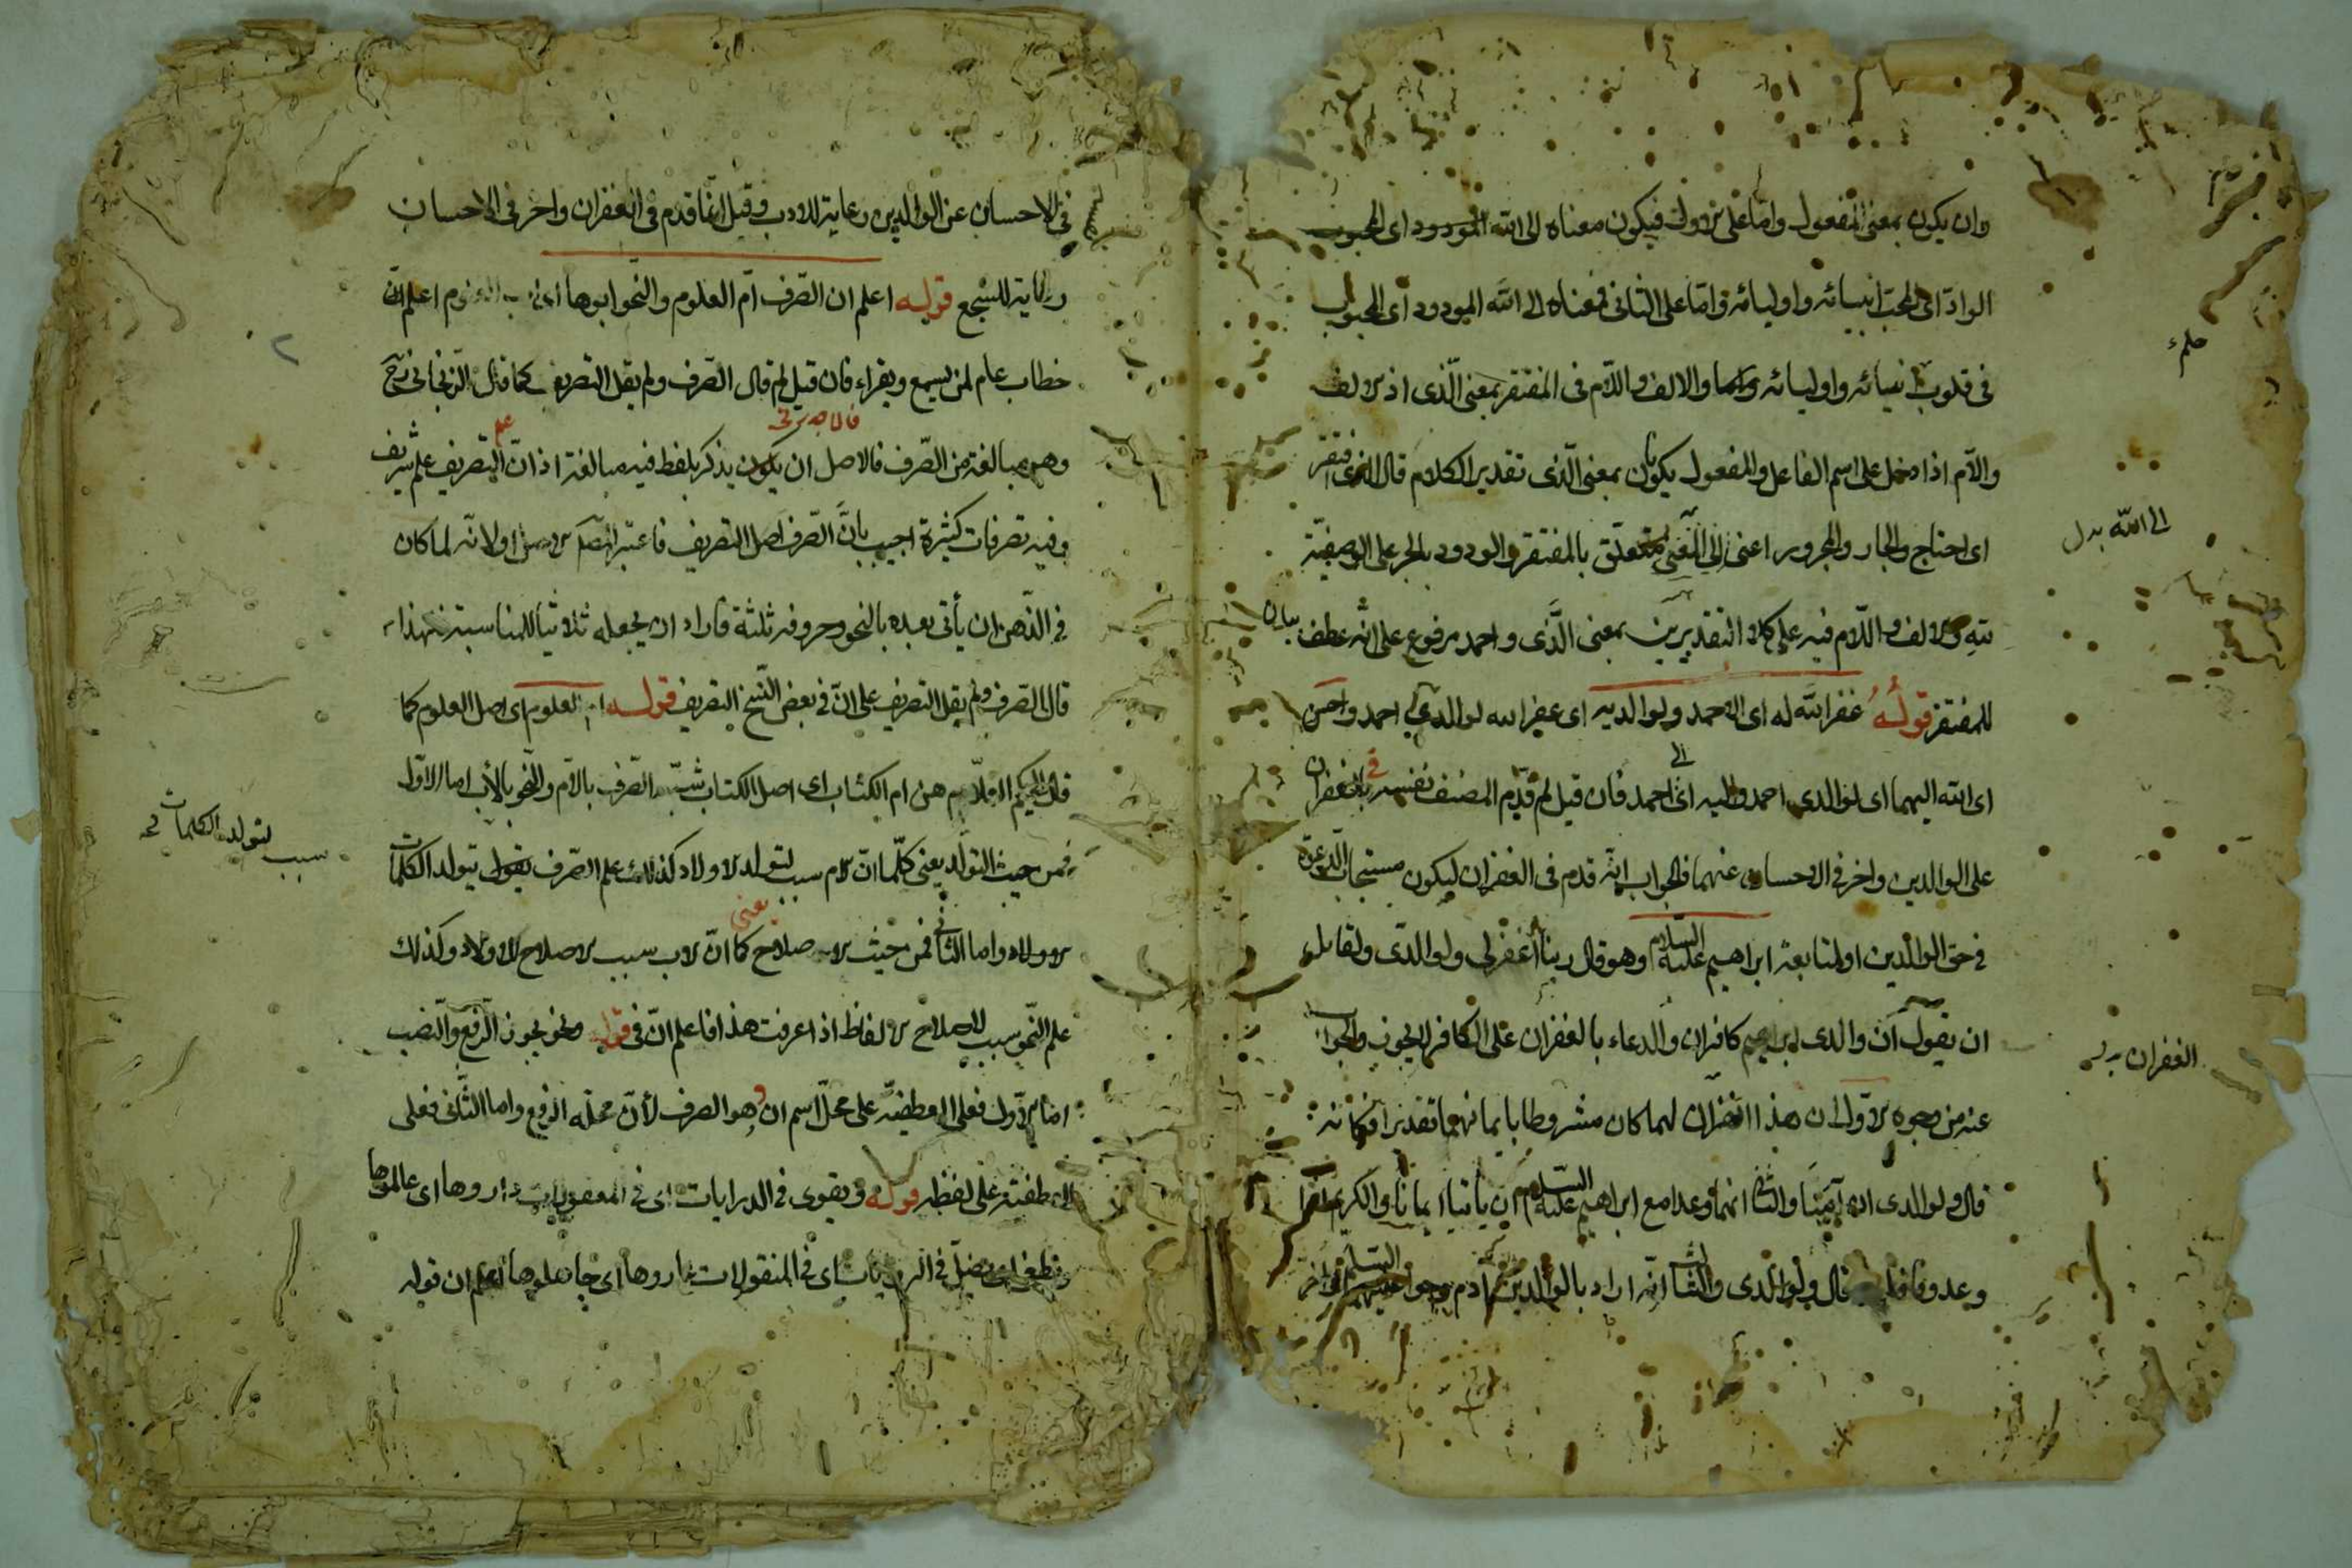 وان يكون بمعنى المفعول واما على الاول فيكون معناه الى الله المودود اى المحبوب
الوادّ اى المحب انبيائه واوليائه واما على الثانى فمعناه الى الله المودود اى المحبوب
فى قلوب انبيائه واوليائه والالف واللام فى المفتقر بمعنى الّذى اذ الالف
واللام اذا دخل على اسم الفاعل والمفعول يكونان بمعنى الّذى تقدير الكلام قال الذى افتقر
اى احتاج والجار والمجرور اعنى الى متعلق بالمفتقر والودود بالجر على الوصفيّة
لله والالف واللام فيه على كلا التقديرين بمعنى الّذى واحمد مرفوع على انه عطف بيان
للمفتقر قوله غفر الله له اى لاحمد ولوالديه اى غفر الله لوالدى احمد واحسن
اى الله اليهما اى لوالدى احمد واليه اى الى احمد فان قيل لم قدّم المصنف نفسه فى الغفران
على الوالدين واخر فى الاحسان عنهما فالجواب انّه قدم فى الغفران ليكون مستجاب الدعوة
فى حق الوالدين او لمتابعة ابراهيم عليه السلام وهو قال ربنا اغفر لى ولوالدى ولقائل
ان يقول ان والدى ابراهيم كافران والدعاء بالغفران على الكافر لا يجوز والجواب
عنه من وجوه الاول ان هذا الغفران لهما كان مشروطا بايمانهما تقديرا فكانه
قال ولوالدى ان آمنا والثانى انهما وعدا مع ابراهيم عليه السلام ان يأتيا ايمانا والكريم اذا
وعد وفا قال ولوالدى والثالث انّه اراد بالوالدين آدم وحوا عليهما السلام واخر
الى الله بدل
الغفران بدل
فى الاحسان عن الوالدين رعاية للادب وقيل انما قدم فى الغفران واخر فى الاحسان
رعاية للسجع قوله اعلم ان الصّرف امّ العلوم والنحو ابوها اى اب العلوم اعلم انّ
خطاب عام لمن يسمع ويقراء فان قيل لم قال الصّرف ولم يقل التصريف كما قال الزنجانى
وهو مبالغة من الصّرف فالاصل ان يذكر بلفظ فيه مبالغة اذ انّ علم التصريف علم شريف
وفيه تصرفات كثيرة اجيب بانّ الصّرف اصل التصريف فاعتبر المص الاصل او لانّه لما كان
فى الذّهن ان يأتى بعده بالنحو وحروفه ثلثة فاراد ان يجعله ثلاثيا للمناسبة فلهذا
قال الصّرف ولم يقل التصريف على انّ فى بعض النسخ التصريف قوله ام العلوم اى اصل العلوم كما
هن ام الكتاب اى اصل الكتاب شبّه الصّرف بالام والنحو بالأب اما الاوّل
فمن حيث التولّد يعنى كما انّ الام سبب لتولد الاولاد كذلك علم الصّرف يتولد الكلمات
الاولاد واما الثانى فمن حيث الاصلاح يعنى كما انّ الاب سبب لاصلاح الاولاد وكذلك
علم النّحو سبب لاصلاح الالفاظ اذا عرفت هذا فاعلم انّ فى قوله والنحو يجوز الرفع والنّصب
امّا الاول فعلى العطفيّة على محلّ اسم ان وهو الصرف لأنّ محلّه الرفع واما الثّانى فعلى
العطفيّة على لفظه قوله ويقوى فى الدرايات اى فى المعقولات داروها اى عالموها
ويطغى اى يضلّ فى الروايات اى فى المنقولات عاروها اى جاهلوها اعلم ان قوله
سبب لتولد الكلمات